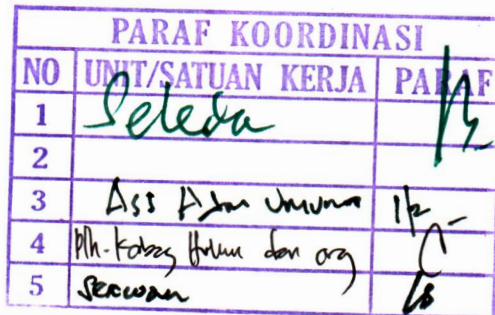 PARAF KOORDINASI
NO UNIT/SATUAN KERJA PARAF
1 Sekda
2
3 Ass Adm Umum
4 Plh. Kabag Hukum dan org
5